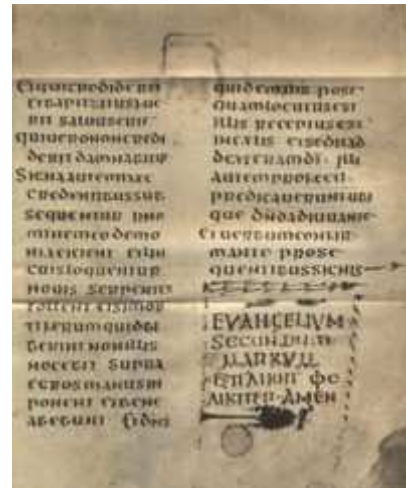 ETQUICREDIDERIT
ETBAPTIZATUSFUE
RIT SALUUSERIT
QUIUERONONCREDI
DERIT DAMNABITUR
SIGNAAUTEMHAEC
CREDENTIBUSSUB
SEQUENTUR INNO
MINEMEODEMO
NIAEICIENT LIN
GUISLOQUENTUR
NOUIS SERPENTES
TOLLENT ETSIMOR
TIFERUMQUIDBI
BERINT NONILLIS
NOCEBIT SUPRA
EGROSMANUSIM
PONENT ETBENE
ABEBUNT ETDNS
QUIDEMIHS POST
QUAMLOCUTUSEST
ILLIS RECEPTUSEST
INCAELIS ETSEDITAD
DEXTERAMDI ILLI
AUTEMPROFECTI
PREDICAUERUNTUBI
QUE DNOADIUUANTE
ETUERBUMCONFIR
MANTE PROSE
QUENTIBUSSIGNIS
EVANGELIVM
SECUNDUM
MARKVM
ΕΠΛΙΚΙΤ ΦΕ
ΛΙΚΙΤΕΡ·ΑΜΕΝ